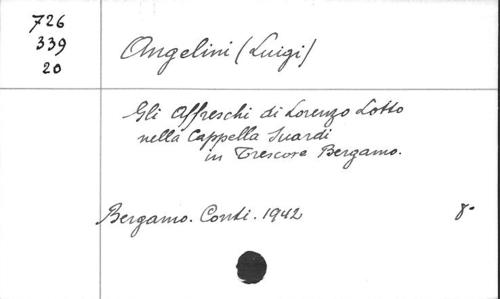 726
339
20
Angelini (Luigi)
Gli Affreschi di Lorenzo Lotto
nella Cappella Suardi
in Trescore Bergamo.
Bergamo. Conti. 1942
8.